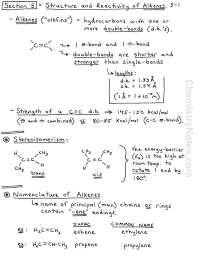 Section 5 - Structure and Reactivity of Alkenes. 5-1
- Alkenes ("olefins") = hydrocarbons with one or
more double-bonds (d.b.'s).
C=C
→ 1 σ-bond and 1 π-bond
→ double-bonds are shorter and
stronger than single-bonds
→ lengths:
d.b. = 1.33 Å
s.b. = 1.54 Å
(1 Å = 1×10⁻¹⁰ m)
- Strength of a C=C d.b. → 145-150 kcal/mol
(σ and π combined) vs 80-85 kcal/mol (C-C σ-bond).
Stereoisomerism:
H CH₃
C=C
H₃C H
trans
H H
C=C
H₃C CH₃
cis
the energy-barrier
(Ea) is too high at
room temp. to
rotate 1 end by
180°.
Nomenclature of Alkenes:
→ name of principal (main) chains or rings
contain "-ene" endings.
IUPAC COMMON NAME
eg: H₂C=CH₂ ethene ethylene
eg: H₂C=CH-CH₃ propene propylene
Chemistry Notes